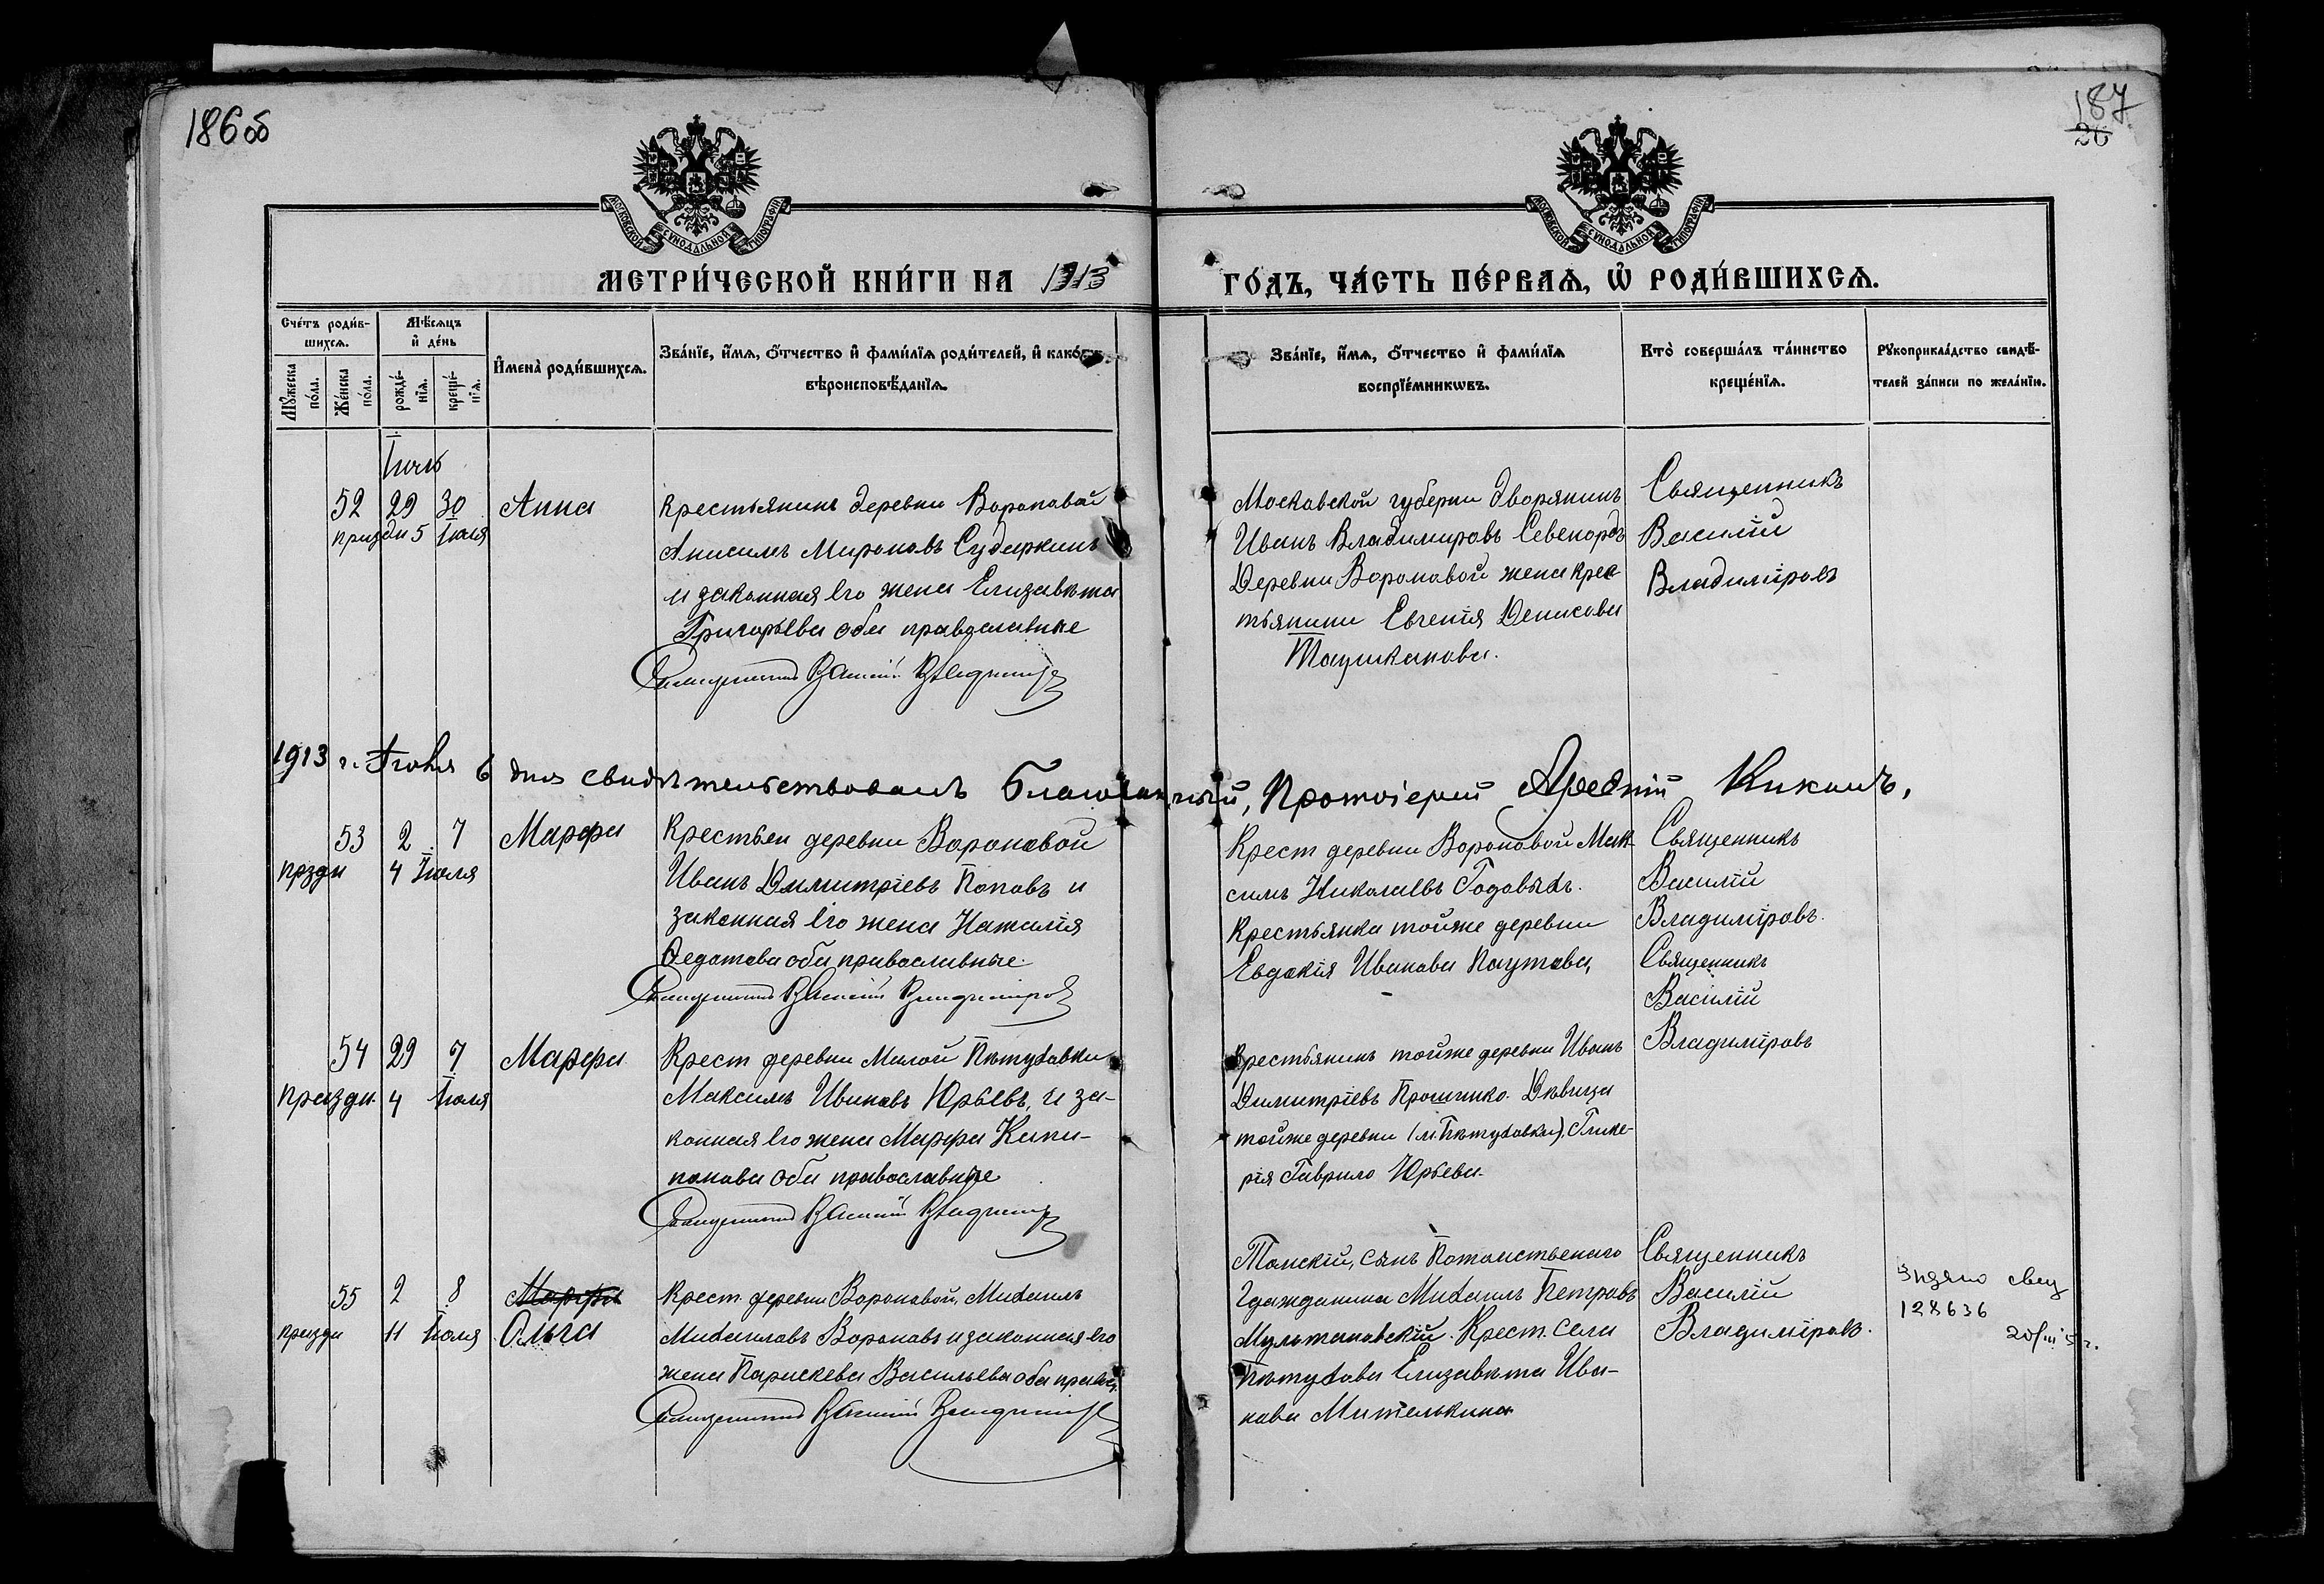 186 об
187
26
МОСКОВСКОЙ СѴНОДАЛЬНОЙ ТИПОГРАФІИ
МОСКОВСКОЙ СѴНОДАЛЬНОЙ ТИПОГРАФІИ
МЕТРИ́ЧЕСКОЙ КНИ́ГИ НА 1913 ГО́ДЪ, ЧА́СТЬ ПЕ́РВАѦ, Ѽ РОДИ́ВШИХСѦ.
Сче́тъ роди́в-
шихсѧ.
Мꙋ́жеска по́ла.
Же́нска по́ла.
Мѣ́сѧцъ и҆ де́нь
рожде́-нїѧ.
креще́-нїѧ.
И҆мена̀ роди́вшихсѧ.
Зва́нїе, и҆́мѧ, ѻ҆́тчество и҆ фами́лїѧ роди́телей, и҆ како́гѡ
вѣроисповѣ́данїѧ.
Зва́нїе, и҆́мѧ, ѻ҆́тчество и҆ фами́лїѧ
воспрїе́мникѡвъ.
Кто̀ соверша́лъ та́инство
креще́нїѧ.
Рꙋкоприкла́дство свидѣ́-
телей за́писи по жела́нїю.
52 29 30 Анна
праздн 5 Іюля
крестьянинъ деревни Вороновой
Анисимъ Мироновъ Сударкинъ
и законная его жена Елизавѣта
Григорьева оба православные
Священникъ Василій Владиміровъ
Московской губерни дворянинъ
Иванъ Владимировъ Севенордъ
Деревни Вороновой жена крес-
тьянина Евгенія Денисова
Священникъ
Василій
Владиміровъ
1913 г. 6 дня свидѣтельствовалъ Благочинный, Протоіерей
53 2 7 Марфа
праздн 4 Іюля
Крестьян деревни Вороновой
Иванъ Димитріевъ Поповъ и
законная его жена Наталія
Ѳедотова оба православные.
Священникъ Василій Владиміровъ
Крест деревни Вороновой Мак-
симъ Николаевъ Годовыхъ.
Крестьянка тойже деревни
Евдокія Иванова Паутова,
Священникъ
Василій
Владиміровъ.
Священникъ
Василій
Владиміровъ
54 29 7 Марфа
праздн. 4 Іюля
Крест деревни Малой Пѣтуховки
Максимъ Ивановъ Юрьевъ, и за-
конная его жена Марфа
оба православные
Священникъ Василій Владиміровъ
Крестьянинъ тойже деревни Иванъ
Димитріевъ Дѣвица
тойже деревни (М. Пѣтуховки), Глике-
рія Гаврило Юрьева.
55 2 8 Марфа
праздн 11 Іюля Ольга
Крест. деревни Вороновой, Михаилъ
Михаиловъ Вороновъ и законная его
жена Параскева Васильева оба правос.
Священникъ Василій Владиміровъ
Томскій, сынъ Потомственаго
Гражданина Михаилъ Петровъ
Мультановскій. Крест. села
Пѣтухова Елизавѣта Ива-
нова Мителькина
Священникъ
Василій
Владиміровъ.
128636